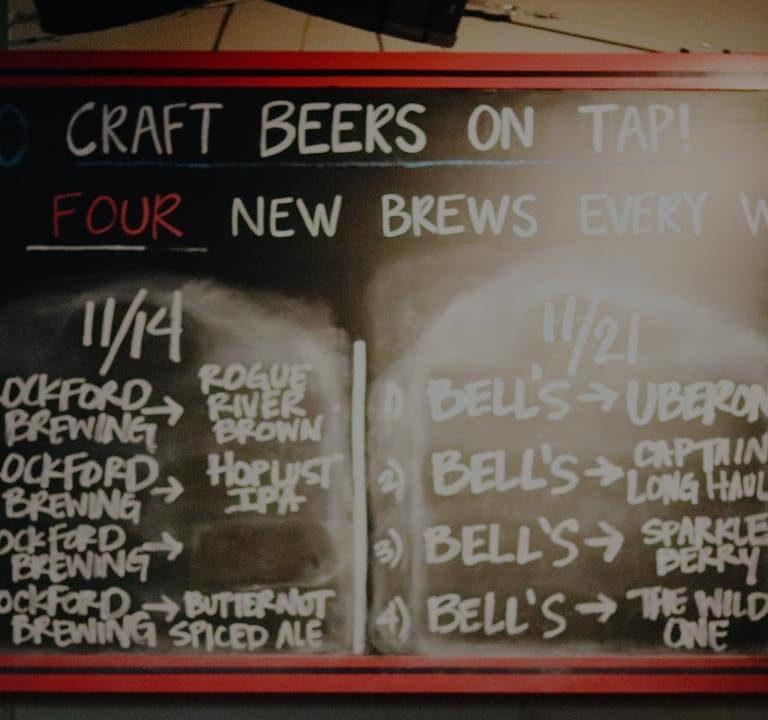 CRAFT BEERS ON TAP!
FOUR NEW BREWS EVERY W
11/14
OCKFORD BREWING → ROGUE RIVER BROWN
OCKFORD BREWING → HOPLUST IPA
OCKFORD BREWING →
OCKFORD BREWING → BUTTERNUT SPICED ALE
11/21
1) BELL'S → UBERON
2) BELL'S → CAPTAIN LONG HAUL
3) BELL'S → SPARKLE BERRY
4) BELL'S → THE WILD ONE